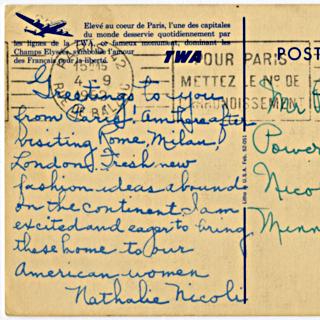 Elevé au coeur de Paris, l'une des capitales
du monde desservie quotidiennement par
les lignes de la TWA, ce fameux monument, dominant les
Champs Elysées, symbolise l'amour
des Français pour la liberté.
TWA
POST
POUR PARIS
METTEZ LE N° DE
L'ARRONDISSEMENT
15H15
4-9
Greetings to you
from Paris! Am here after
visiting Rome, Milan,
London. Fresh new
fashion ideas abound
on the continent. I am
excited and eager to bring
these home to our
American women
Nathalie Nicoli
Litho in U.S.A. Feb. 52-051
Power
Nico
Minn